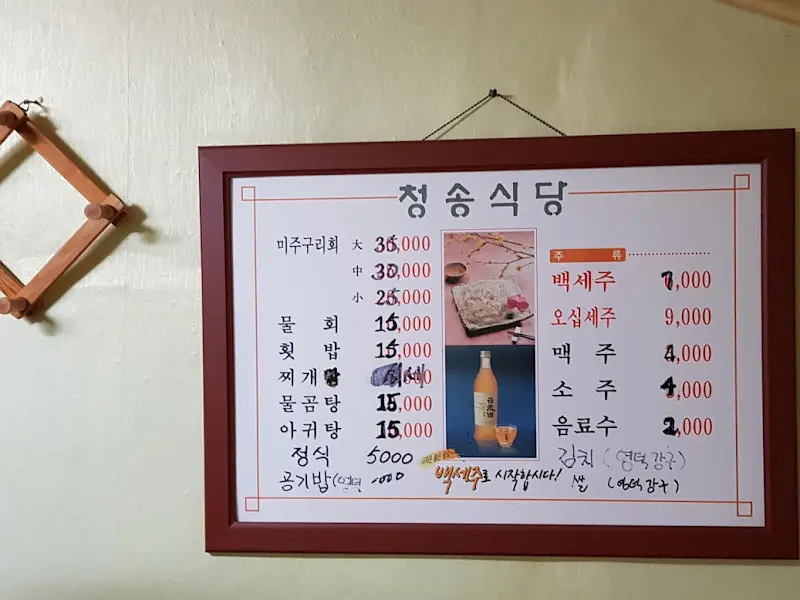 청송식당
미주구리회 大 35,000
中 30,000
小 25,000
물 회 15,000
횟 밥 15,000
찌개
물곰탕 15,000
아귀탕 15,000
정식 5000
공기밥(영덕
주 류
백세주 7,000
오십세주 9,000
맥 주 4,000
소 주 4,000
음료수 2,000
김치 (영덕강구)
쌀 (영덕강구)
백세주로 시작합시다!